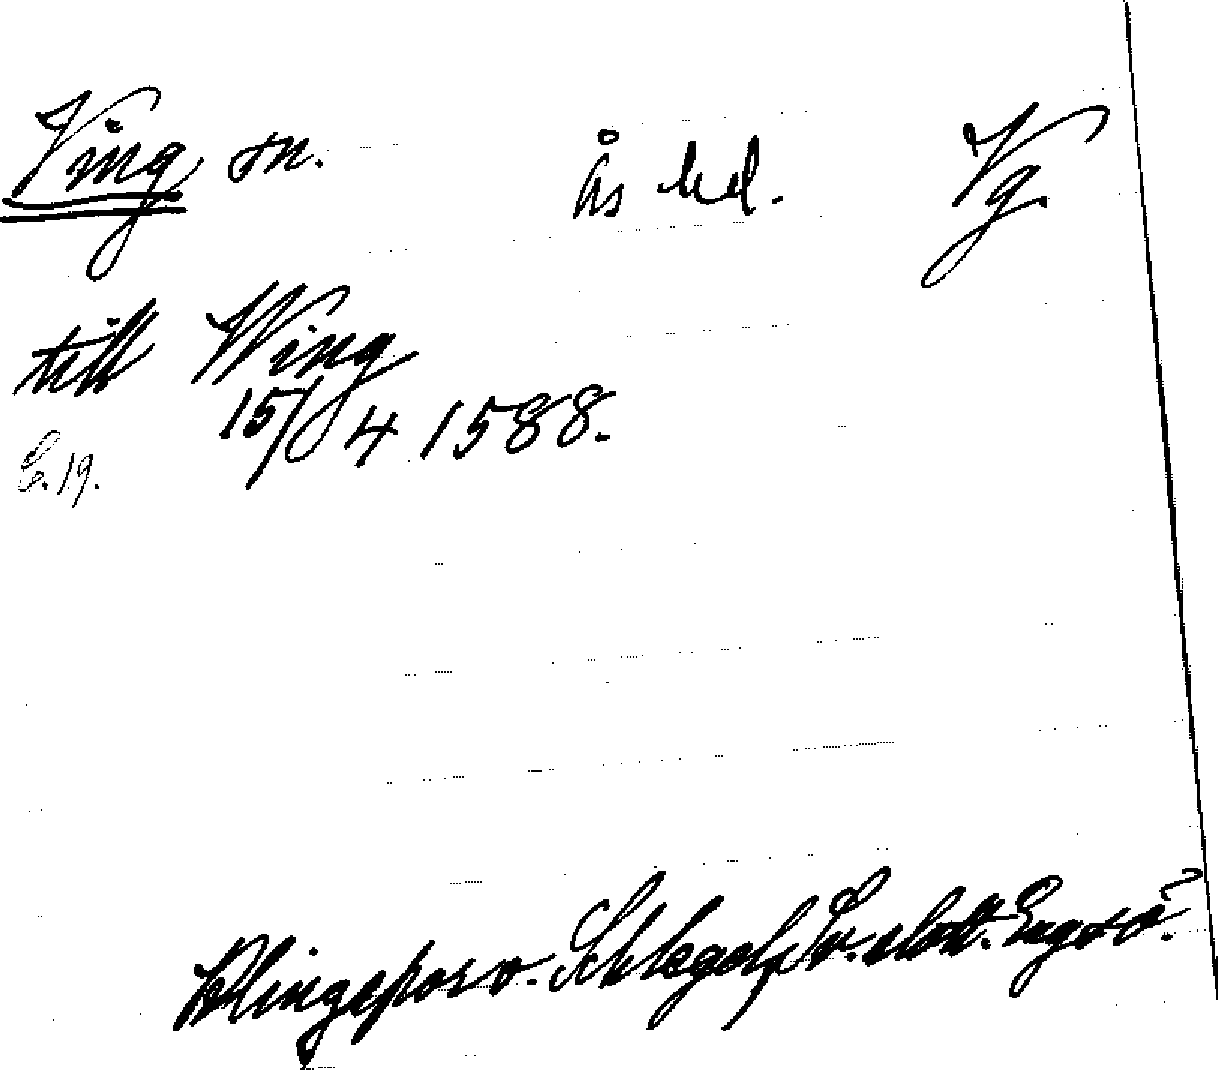 Ving sn. Ås hd. Vg.
till Wing
15/4 1588.
E. 19.
Klingspor o. Schlegel, Sv. slott. Engsö.